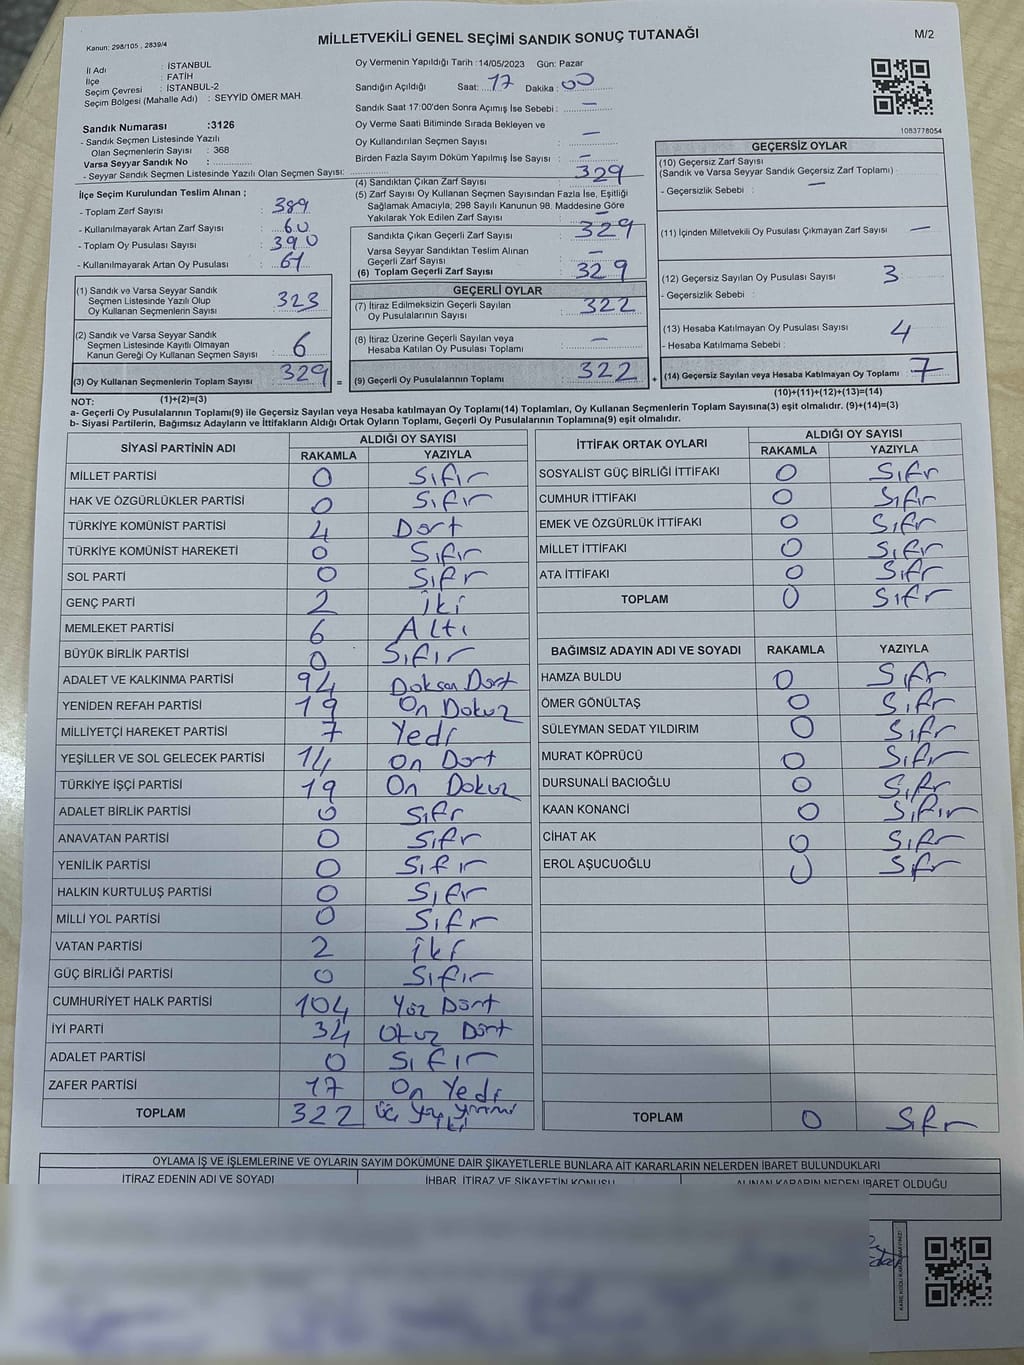 Kanun: 298/105 , 2839/4
MİLLETVEKİLİ GENEL SEÇİMİ SANDIK SONUÇ TUTANAĞI
M/2
İl Adı : İSTANBUL
İlçe : FATİH
Seçim Çevresi : İSTANBUL-2
Seçim Bölgesi (Mahalle Adı) : SEYYİD ÖMER MAH.
Sandık Numarası :3126
- Sandık Seçmen Listesinde Yazılı
Olan Seçmenlerin Sayısı : 368
Varsa Seyyar Sandık No :
- Seyyar Sandık Seçmen Listesinde Yazılı Olan Seçmen Sayısı:
İlçe Seçim Kurulundan Teslim Alınan ;
- Toplam Zarf Sayısı : 389
- Kullanılmayarak Artan Zarf Sayısı : 60
- Toplam Oy Pusulası Sayısı : 390
- Kullanılmayarak Artan Oy Pusulası : 61
(1) Sandık ve Varsa Seyyar Sandık
Seçmen Listesinde Yazılı Olup
Oy Kullanan Seçmenlerin Sayısı : 323
(2) Sandık ve Varsa Seyyar Sandık
Seçmen Listesinde Kayıtlı Olmayan
Kanun Gereği Oy Kullanan Seçmen Sayısı : 6
(3) Oy Kullanan Seçmenlerin Toplam Sayısı : 329
Oy Vermenin Yapıldığı Tarih :14/05/2023 Gün: Pazar
Sandığın Açıldığı Saat: 17 Dakika : 00
Sandık Saat 17:00'den Sonra Açımış İse Sebebi : —
Oy Verme Saati Bitiminde Sırada Bekleyen ve
Oy Kullandırılan Seçmen Sayısı : —
Birden Fazla Sayım Döküm Yapılmış İse Sayısı : —
(4) Sandıktan Çıkan Zarf Sayısı : 329
(5) Zarf Sayısı Oy Kullanan Seçmen Sayısından Fazla İse, Eşitliği
Sağlamak Amacıyla; 298 Sayılı Kanunun 98. Maddesine Göre
Yakılarak Yok Edilen Zarf Sayısı : —
Sandıkta Çıkan Geçerli Zarf Sayısı : 329
Varsa Seyyar Sandıktan Teslim Alınan
Geçerli Zarf Sayısı : —
(6) Toplam Geçerli Zarf Sayısı : 329
GEÇERLİ OYLAR
(7) İtiraz Edilmeksizin Geçerli Sayılan
Oy Pusulalarının Sayısı : 322
(8) İtiraz Üzerine Geçerli Sayılan veya
Hesaba Katılan Oy Pusulası Toplamı : —
= (9) Geçerli Oy Pusulalarının Toplamı : 322
1083778054
GEÇERSİZ OYLAR
(10) Geçersiz Zarf Sayısı
(Sandık ve Varsa Seyyar Sandık Geçersiz Zarf Toplamı)
- Geçersizlik Sebebi : —
(11) İçinden Milletvekili Oy Pusulası Çıkmayan Zarf Sayısı : —
(12) Geçersiz Sayılan Oy Pusulası Sayısı : 3
- Geçersizlik Sebebi :
(13) Hesaba Katılmayan Oy Pusulası Sayısı : 4
- Hesaba Katılmama Sebebi :
+ (14) Geçersiz Sayılan veya Hesaba Katılmayan Oy Toplamı : 7
NOT: (1)+(2)=(3)
(10)+(11)+(12)+(13)=(14)
a- Geçerli Oy Pusulalarının Toplamı(9) ile Geçersiz Sayılan veya Hesaba katılmayan Oy Toplamı(14) Toplamları, Oy Kullanan Seçmenlerin Toplam Sayısına(3) eşit olmalıdır. (9)+(14)=(3)
b- Siyasi Partilerin, Bağımsız Adayların ve İttifakların Aldığı Ortak Oyların Toplamı, Geçerli Oy Pusulalarının Toplamına(9) eşit olmalıdır.
SİYASİ PARTİNİN ADI
ALDIĞI OY SAYISI
RAKAMLA YAZIYLA
MİLLET PARTİSİ 0 Sıfır
HAK VE ÖZGÜRLÜKLER PARTİSİ 0 Sıfır
TÜRKİYE KOMÜNİST PARTİSİ 4 Dört
TÜRKİYE KOMÜNİST HAREKETİ 0 Sıfır
SOL PARTİ 0 Sıfır
GENÇ PARTİ 2 İki
MEMLEKET PARTİSİ 6 Altı
BÜYÜK BİRLİK PARTİSİ 0 Sıfır
ADALET VE KALKINMA PARTİSİ 94 Doksan Dört
YENİDEN REFAH PARTİSİ 19 On Dokuz
MİLLİYETÇİ HAREKET PARTİSİ 7 Yedi
YEŞİLLER VE SOL GELECEK PARTİSİ 14 On Dört
TÜRKİYE İŞÇİ PARTİSİ 19 On Dokuz
ADALET BİRLİK PARTİSİ 0 Sıfır
ANAVATAN PARTİSİ 0 Sıfır
YENİLİK PARTİSİ 0 Sıfır
HALKIN KURTULUŞ PARTİSİ 0 Sıfır
MİLLİ YOL PARTİSİ 0 Sıfır
VATAN PARTİSİ 2 İki
GÜÇ BİRLİĞİ PARTİSİ 0 Sıfır
CUMHURİYET HALK PARTİSİ 104 Yüz Dört
İYİ PARTİ 34 Otuz Dört
ADALET PARTİSİ 0 Sıfır
ZAFER PARTİSİ 17 On Yedi
TOPLAM 322 Üç Yüz Yirmi İki
İTTİFAK ORTAK OYLARI
ALDIĞI OY SAYISI
RAKAMLA YAZIYLA
SOSYALİST GÜÇ BİRLİĞİ İTTİFAKI 0 Sıfır
CUMHUR İTTİFAKI 0 Sıfır
EMEK VE ÖZGÜRLÜK İTTİFAKI 0 Sıfır
MİLLET İTTİFAKI 0 Sıfır
ATA İTTİFAKI 0 Sıfır
TOPLAM 0 Sıfır
BAĞIMSIZ ADAYIN ADI VE SOYADI RAKAMLA YAZIYLA
HAMZA BULDU 0 Sıfır
ÖMER GÖNÜLTAŞ 0 Sıfır
SÜLEYMAN SEDAT YILDIRIM 0 Sıfır
MURAT KÖPRÜCÜ 0 Sıfır
DURSUNALİ BACIOĞLU 0 Sıfır
KAAN KONANCİ 0 Sıfır
CİHAT AK 0 Sıfır
EROL AŞUCUOĞLU 0 Sıfır
TOPLAM 0 Sıfır
OYLAMA İŞ VE İŞLEMLERİNE VE OYLARIN SAYIM DÖKÜMÜNE DAİR ŞİKAYETLERLE BUNLARA AİT KARARLARIN NELERDEN İBARET BULUNDUKLARI
İTİRAZ EDENİN ADI VE SOYADI
İHBAR, İTİRAZ VE ŞİKAYETİN KONUSU
ALINAN KARARIN NEDEN İBARET OLDUĞU